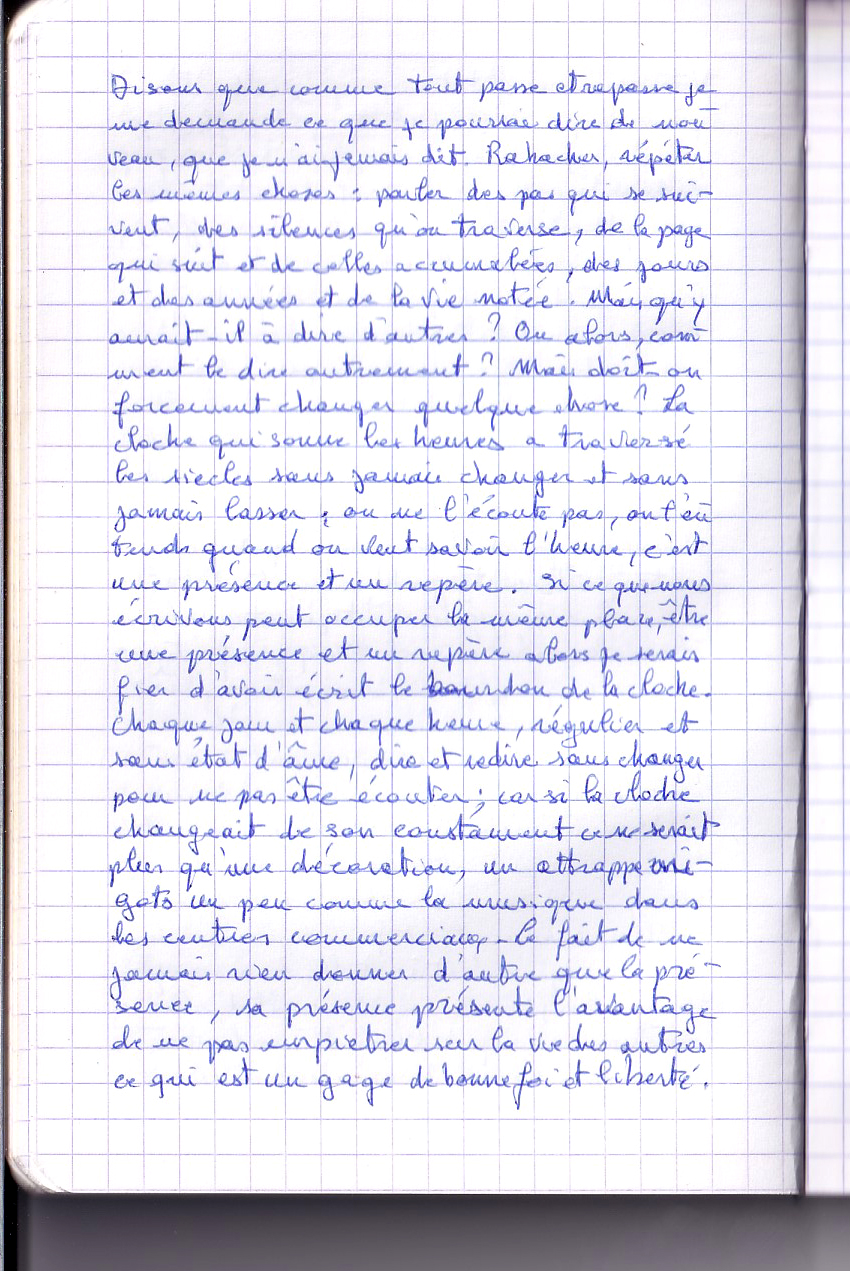 Disons que comme tout passe et repasse je
me demande ce que je pourrai dire de nou-
veau, que je n'ai jamais dit. Rabacher, répéter
les mêmes choses : parler des pas qui se sui-
vent, des silences qu'on traverse, de la page
qui suit et de celles accumulées, des jours
et des années et de la vie notée. Mais, qu'y
aurait-il à dire d'autres ? Ou alors, com
ment le dire autrement ? Mais doit-on
forcement changer quelque chose ? La
cloche qui sonne les heures a traversé
les siecles sans jamais changer et sans
jamais lasser ; on ne l'écoute pas, on l'en
tends quand on veut savoir l'heure, c'est
une présence et un repère. Si ce que nous
écrivons peut occuper la même place, être
une présence et un repère alors je serais
fier d'avoir écrit le bourdon de la cloche.
Chaque jour et chaque heure, régulier et
sans état d'âme, dire et redire sans changer
pour ne pas être écouter ; car si la cloche
changeait de son constament ce ne serait
plus qu'une décoration, un attrappe ni-
gots un peu comme la musique dans
les centres commerciaux. Le fait de ne
jamais rien donner d'autre que la pré-
sence, sa présence présente l'avantage
de ne pas empietrer sur la vie des autres
ce qui est un gage de bonne foi et liberté.